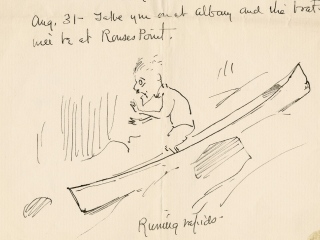 Aug. 31 - Take you on at Albany and the
will be at Rouses Point.
Running rapids -